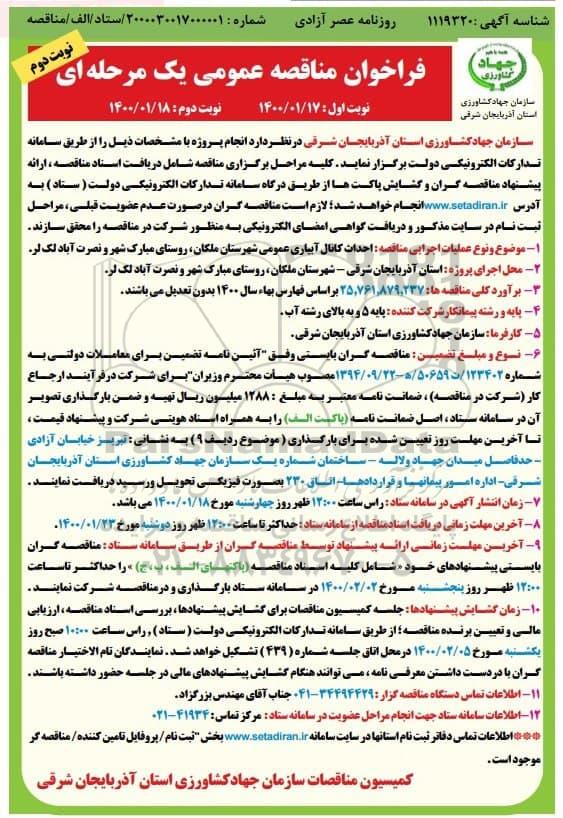 شناسه آگهی: ۱۱۱۹۳۲۰ روزنامه عصر آزادی شماره: ۲۰۰۰۰۳۰۰۱۷۰۰۰۰۰۱/ستاد/الف/مناقصه
نوبت دوم
همه با هم
جهاد
کشاورزی
سازمان جهادکشاورزی
استان آذربایجان شرقی
فراخوان مناقصه عمومی یک مرحله‌ای
نوبت اول: ۱۴۰۰/۰۱/۱۷ نوبت دوم: ۱۴۰۰/۰۱/۱۸
سازمان جهادکشاورزی استان آذربایجان شرقی درنظر دارد انجام پروژه با مشخصات ذیل را از طریق سامانه
تدارکات الکترونیکی دولت برگزار نماید. کلیه مراحل برگزاری مناقصه شامل دریافت اسناد مناقصه، ارائه
پیشنهاد مناقصه گران و گشایش پاکت ها از طریق درگاه سامانه تدارکات الکترونیکی دولت (ستاد) به
آدرس www.setadiran.ir انجام خواهد شد؛ لازم است مناقصه گران درصورت عدم عضویت قبلی، مراحل
ثبت نام در سایت مذکور و دریافت گواهی امضای الکترونیکی به منظور شرکت در مناقصه را محقق سازند.
۱- موضوع ونوع عملیات اجرایی مناقصه: احداث کانال آبیاری عمومی شهرستان ملکان، روستای مبارک شهر و نصرت آباد لک لر.
۲- محل اجرای پروژه: استان آذربایجان شرقی – شهرستان ملکان، روستای مبارک شهر و نصرت آباد لک لر.
۳- برآورد کلی مناقصه ها: ۲۵,۷۶۱,۸۷۹,۲۳۷ براساس فهارس بهاء سال ۱۴۰۰ بدون تعدیل می باشند.
۴- پایه و رشته پیمانکار شرکت کننده: پایه ۵ و به بالای رشته آب.
۵- کارفرما: سازمان جهادکشاورزی استان آذربایجان شرقی.
۶- نوع و مبلغ تضمین: مناقصه گران بایستی وفق "آئین نامه تضمین برای معاملات دولتی به
شماره ۱۲۳۴۰۲/ت۵۰۶۵۹/ه-۱۳۹۴/۰۹/۲۲ مصوب هیأت محترم وزیران" برای شرکت در فرآیند ارجاع
کار (شرکت در مناقصه)، ضمانت نامه معتبر به مبلغ: ۱۲۸۸ میلیون ریال تهیه و ضمن بارگذاری تصویر
آن در سامانه ستاد، اصل ضمانت نامه (پاکت الف) را به همراه اسناد هویتی شرکت و پیشنهاد قیمت،
تا آخرین مهلت روز تعیین شده برای بارگذاری (موضوع ردیف ۹) به نشانی: تبریز خیابان آزادی
- حدفاصل میدان جهاد و لاله – ساختمان شماره یک سازمان جهاد کشاورزی استان آذربایجان
شرقی- اداره امور پیمانها و قراردادها- اتاق ۲۳۰ بصورت فیزیکی تحویل و رسید دریافت نمایند.
۷- زمان انتشار آگهی در سامانه ستاد: راس ساعت ۱۲:۰۰ ظهر روز چهارشنبه مورخ ۱۴۰۰/۰۱/۱۸ می باشد.
۸- آخرین مهلت زمانی دریافت اسناد مناقصه از سامانه ستاد: حداکثر تا ساعت ۱۲:۰۰ ظهر روز دوشنبه مورخ ۱۴۰۰/۰۱/۲۳.
۹- آخرین مهلت زمانی ارائه پیشنهاد توسط مناقصه گران از طریق سامانه ستاد: مناقصه گران
بایستی پیشنهادهای خود «شامل کلیه اسناد مناقصه (پاکتهای الف، ب، ج)» را حداکثر تا ساعت
۱۲:۰۰ ظهر روز پنجشنبه مورخ ۱۴۰۰/۰۲/۰۲ در سامانه ستاد بارگذاری و درمناقصه شرکت نمایند.
۱۰- زمان گشایش پیشنهادها: جلسه کمیسیون مناقصات برای گشایش پیشنهادها، بررسی اسناد مناقصه، ارزیابی
مالی و تعیین برنده مناقصه؛ از طریق سامانه تدارکات الکترونیکی دولت (ستاد)، راس ساعت ۱۰:۰۰ صبح روز
یکشنبه مورخ ۱۴۰۰/۰۲/۰۵ درمحل اتاق جلسه شماره (۴۳۹) تشکیل خواهد شد. نمایندگان تام الاختیار مناقصه
گران با در دست داشتن معرفی نامه، می توانند هنگام گشایش پیشنهادهای مالی در جلسه حضور داشته باشند.
۱۱- اطلاعات تماس دستگاه مناقصه گزار: ۳۴۴۹۴۴۲۹-۰۴۱ جناب آقای مهندس بزرگزاد.
۱۲- اطلاعات سامانه ستاد جهت انجام مراحل عضویت در سامانه ستاد: مرکز تماس: ۴۱۹۳۴-۰۲۱
***اطلاعات تماس دفاتر ثبت نام استانها در سایت سامانه www.setadiran.ir بخش "ثبت نام/ پروفایل تامین کننده/ مناقصه گر
موجود است.
کمیسیون مناقصات سازمان جهادکشاورزی استان آذربایجان شرقی
ParsNamadData
۰۲۱-۸۸۳۴۹۶۷۰-۵